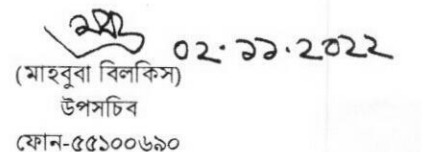 ০২.১১.২০২২
(মাহবুবা বিলকিস)
উপসচিব
ফোন-৫৫১০০৬৯০